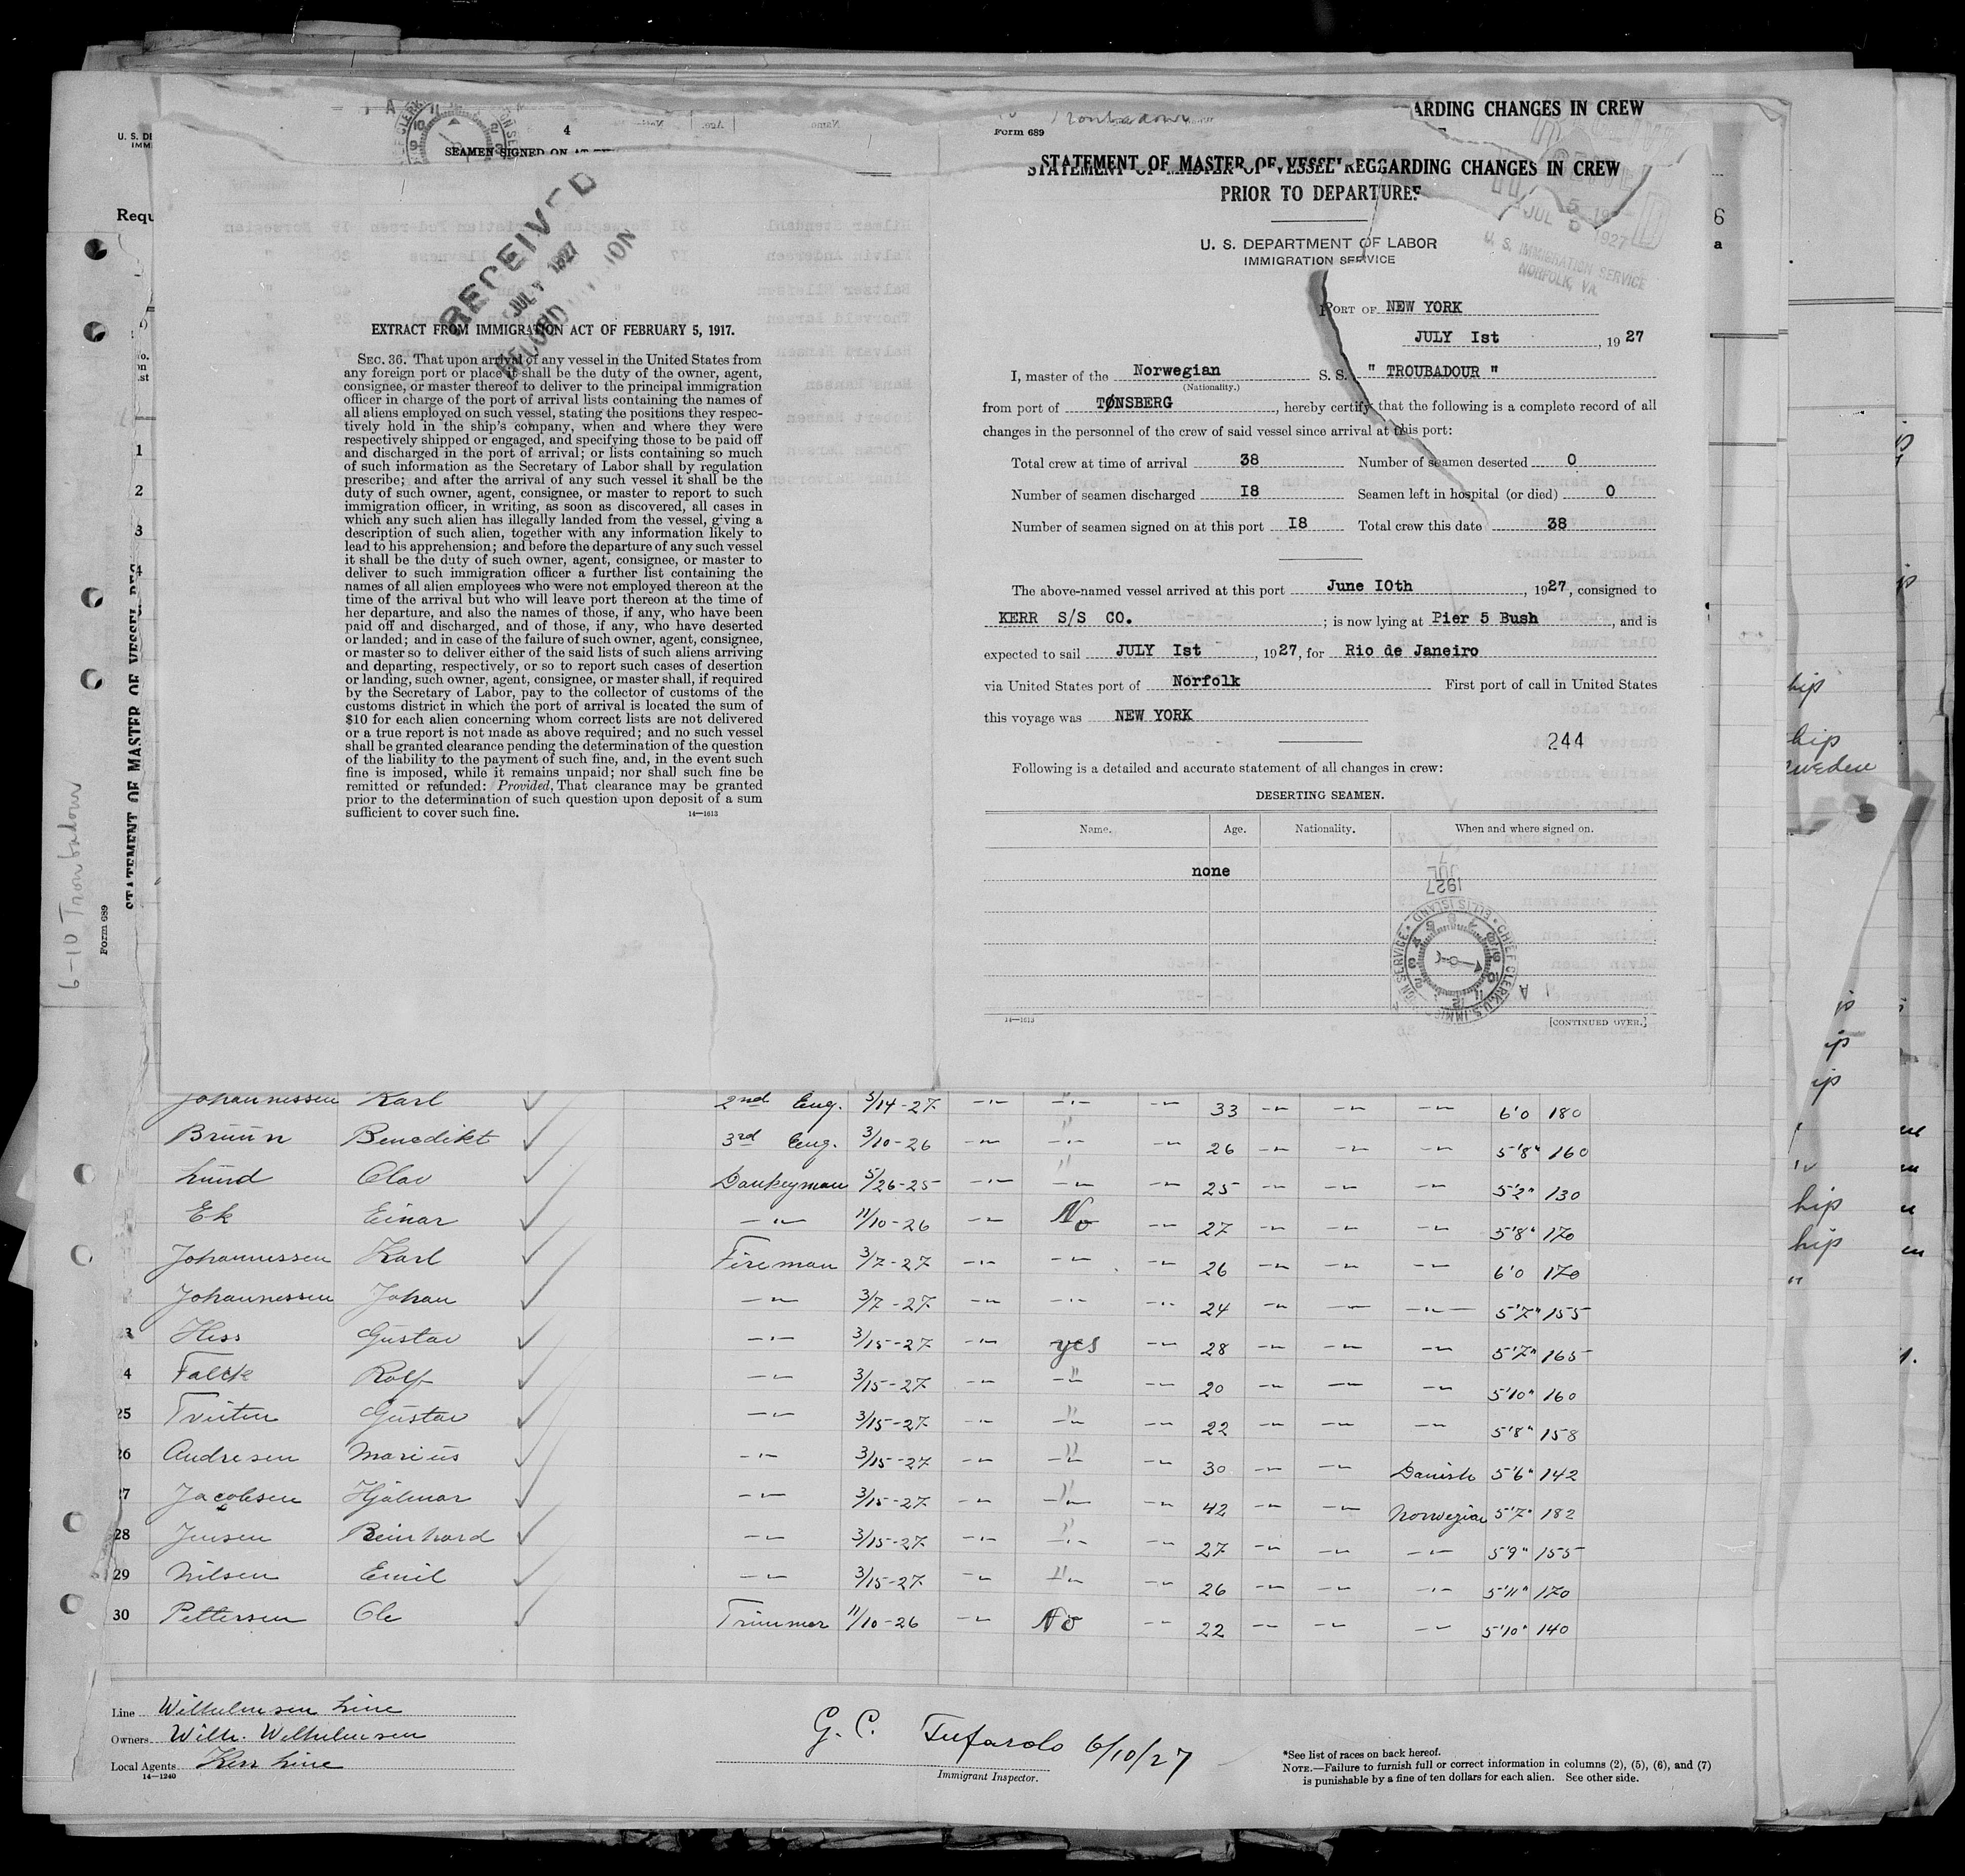 U. S. DE
IMM
Requ
4
SEAMEN SIGNED ON AT
RECEIVED
JUL 7 1927
RECORD DIVISION
EXTRACT FROM IMMIGRATION ACT OF FEBRUARY 5, 1917.
SEC. 36. That upon arrival of any vessel in the United States from
any foreign port or place it shall be the duty of the owner, agent,
consignee, or master thereof to deliver to the principal immigration
officer in charge of the port of arrival lists containing the names of
all aliens employed on such vessel, stating the positions they respec-
tively hold in the ship's company, when and where they were
respectively shipped or engaged, and specifying those to be paid off
and discharged in the port of arrival; or lists containing so much
of such information as the Secretary of Labor shall by regulation
prescribe; and after the arrival of any such vessel it shall be the
duty of such owner, agent, consignee, or master to report to such
immigration officer, in writing, as soon as discovered, all cases in
which any such alien has illegally landed from the vessel, giving a
description of such alien, together with any information likely to
lead to his apprehension; and before the departure of any such vessel
it shall be the duty of such owner, agent, consignee, or master to
deliver to such immigration officer a further list containing the
names of all alien employees who were not employed thereon at the
time of the arrival but who will leave port thereon at the time of
her departure, and also the names of those, if any, who have been
paid off and discharged, and of those, if any, who have deserted
or landed; and in case of the failure of such owner, agent, consignee,
or master so to deliver either of the said lists of such aliens arriving
and departing, respectively, or so to report such cases of desertion
or landing, such owner, agent, consignee, or master shall, if required
by the Secretary of Labor, pay to the collector of customs of the
customs district in which the port of arrival is located the sum of
$10 for each alien concerning whom correct lists are not delivered
or a true report is not made as above required; and no such vessel
shall be granted clearance pending the determination of the question
of the liability to the payment of such fine, and, in the event such
fine is imposed, while it remains unpaid; nor shall such fine be
remitted or refunded: Provided, That clearance may be granted
prior to the determination of such question upon deposit of a sum
sufficient to cover such fine.
14—1613
Troubadour
ARDING CHANGES IN CREW
Form 689
STATEMENT OF MASTER OF VESSEL REGARDING CHANGES IN CREW
PRIOR TO DEPARTURE
U. S. DEPARTMENT OF LABOR
IMMIGRATION SERVICE
JUL 5 1927
U. S. IMMIGRATION SERVICE
NORFOLK, VA.
PORT OF NEW YORK
JULY Ist, 1927
I, master of the Norwegian S. S. " TROUBADOUR "
(Nationality.)
from port of TØNSBERG, hereby certify that the following is a complete record of all
changes in the personnel of the crew of said vessel since arrival at this port:
Total crew at time of arrival 38 Number of seamen deserted 0
Number of seamen discharged I8 Seamen left in hospital (or died) 0
Number of seamen signed on at this port I8 Total crew this date 38
The above-named vessel arrived at this port June IOth, 1927, consigned to
KERR S/S CO. ; is now lying at Pier 5 Bush, and is
expected to sail JULY Ist, 1927, for Rio de Janeiro
via United States port of Norfolk First port of call in United States
this voyage was NEW YORK
244
Following is a detailed and accurate statement of all changes in crew:
DESERTING SEAMEN.
Name. Age. Nationality. When and where signed on.
none
JUL 7
1927
CHIEF CLERK, U.S. IMMIGRATION SERVICE • ELLIS ISLAND
14—1613
[CONTINUED OVER.]
STATEMENT OF MASTER OF VESSEL REG
Form 689
6-10 Troubadour
Johannessen Karl 2nd Eng. 5/14-27 33 6'0 180
Bruun Benedikt 3rd Eng. 3/10-26 " 26 5'8" 160
Lund Olav Donkeyman 5/26-25 " 25 5'2" 130
Ek Einar 11/10-26 No 27 5'8" 170
Johannessen Karl Fireman 3/7-27 26 6'0 170
Johannessen Johan 3/7-27 24 5'7" 155
23 Hiss Gustav 3/15-27 yes 28 5'7" 165
4 Falck Rolf 3/15-27 " 20 5'10" 160
25 Tveiten Gustav 3/15-27 " 22 5'8" 158
26 Andresen Marius 3/15-27 " 30 Danish 5'6" 142
27 Jacobsen Hjalmar 3/15-27 42 Norwegian 5'7" 182
28 Jensen Reinhard 3/15-27 " 27 5'9" 155
29 Nilsen Emil 3/15-27 " 26 5'11" 170
30 Pettersen Ole Trimmer 11/10-26 No 22 5'10" 140
Line Wilhelmsen Line
Owners Wilh. Wilhelmsen
Local Agents Kerr Line
14—1240
G. C. Tufarolo 6/10/27
Immigrant Inspector.
*See list of races on back hereof.
NOTE.—Failure to furnish full or correct information in columns (2), (5), (6), and (7)
is punishable by a fine of ten dollars for each alien. See other side.